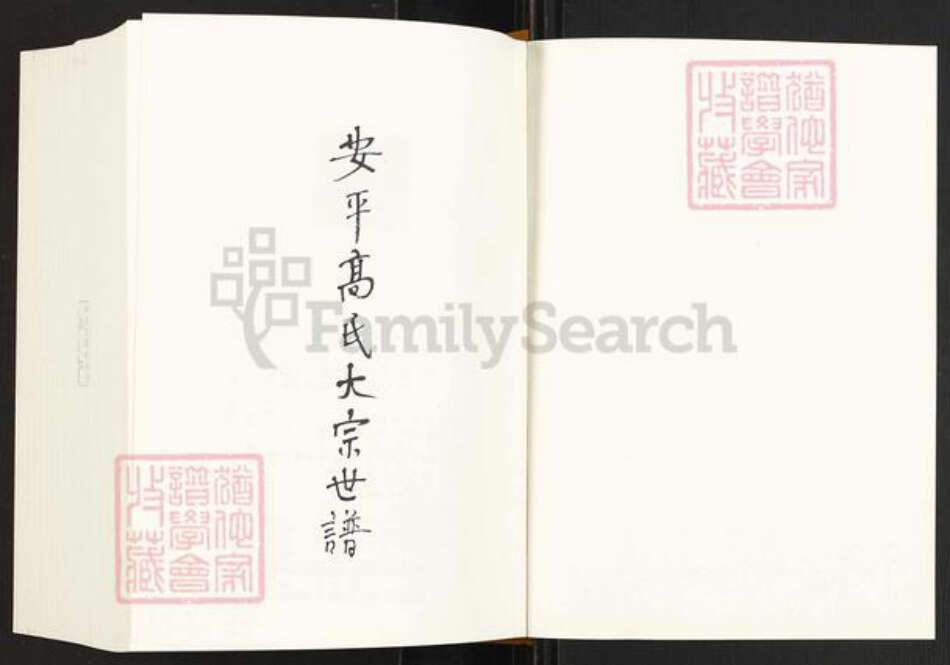 安平高氏大宗世譜
猶他家
譜學會
收藏
猶他家
譜學會
收藏
FamilySearch